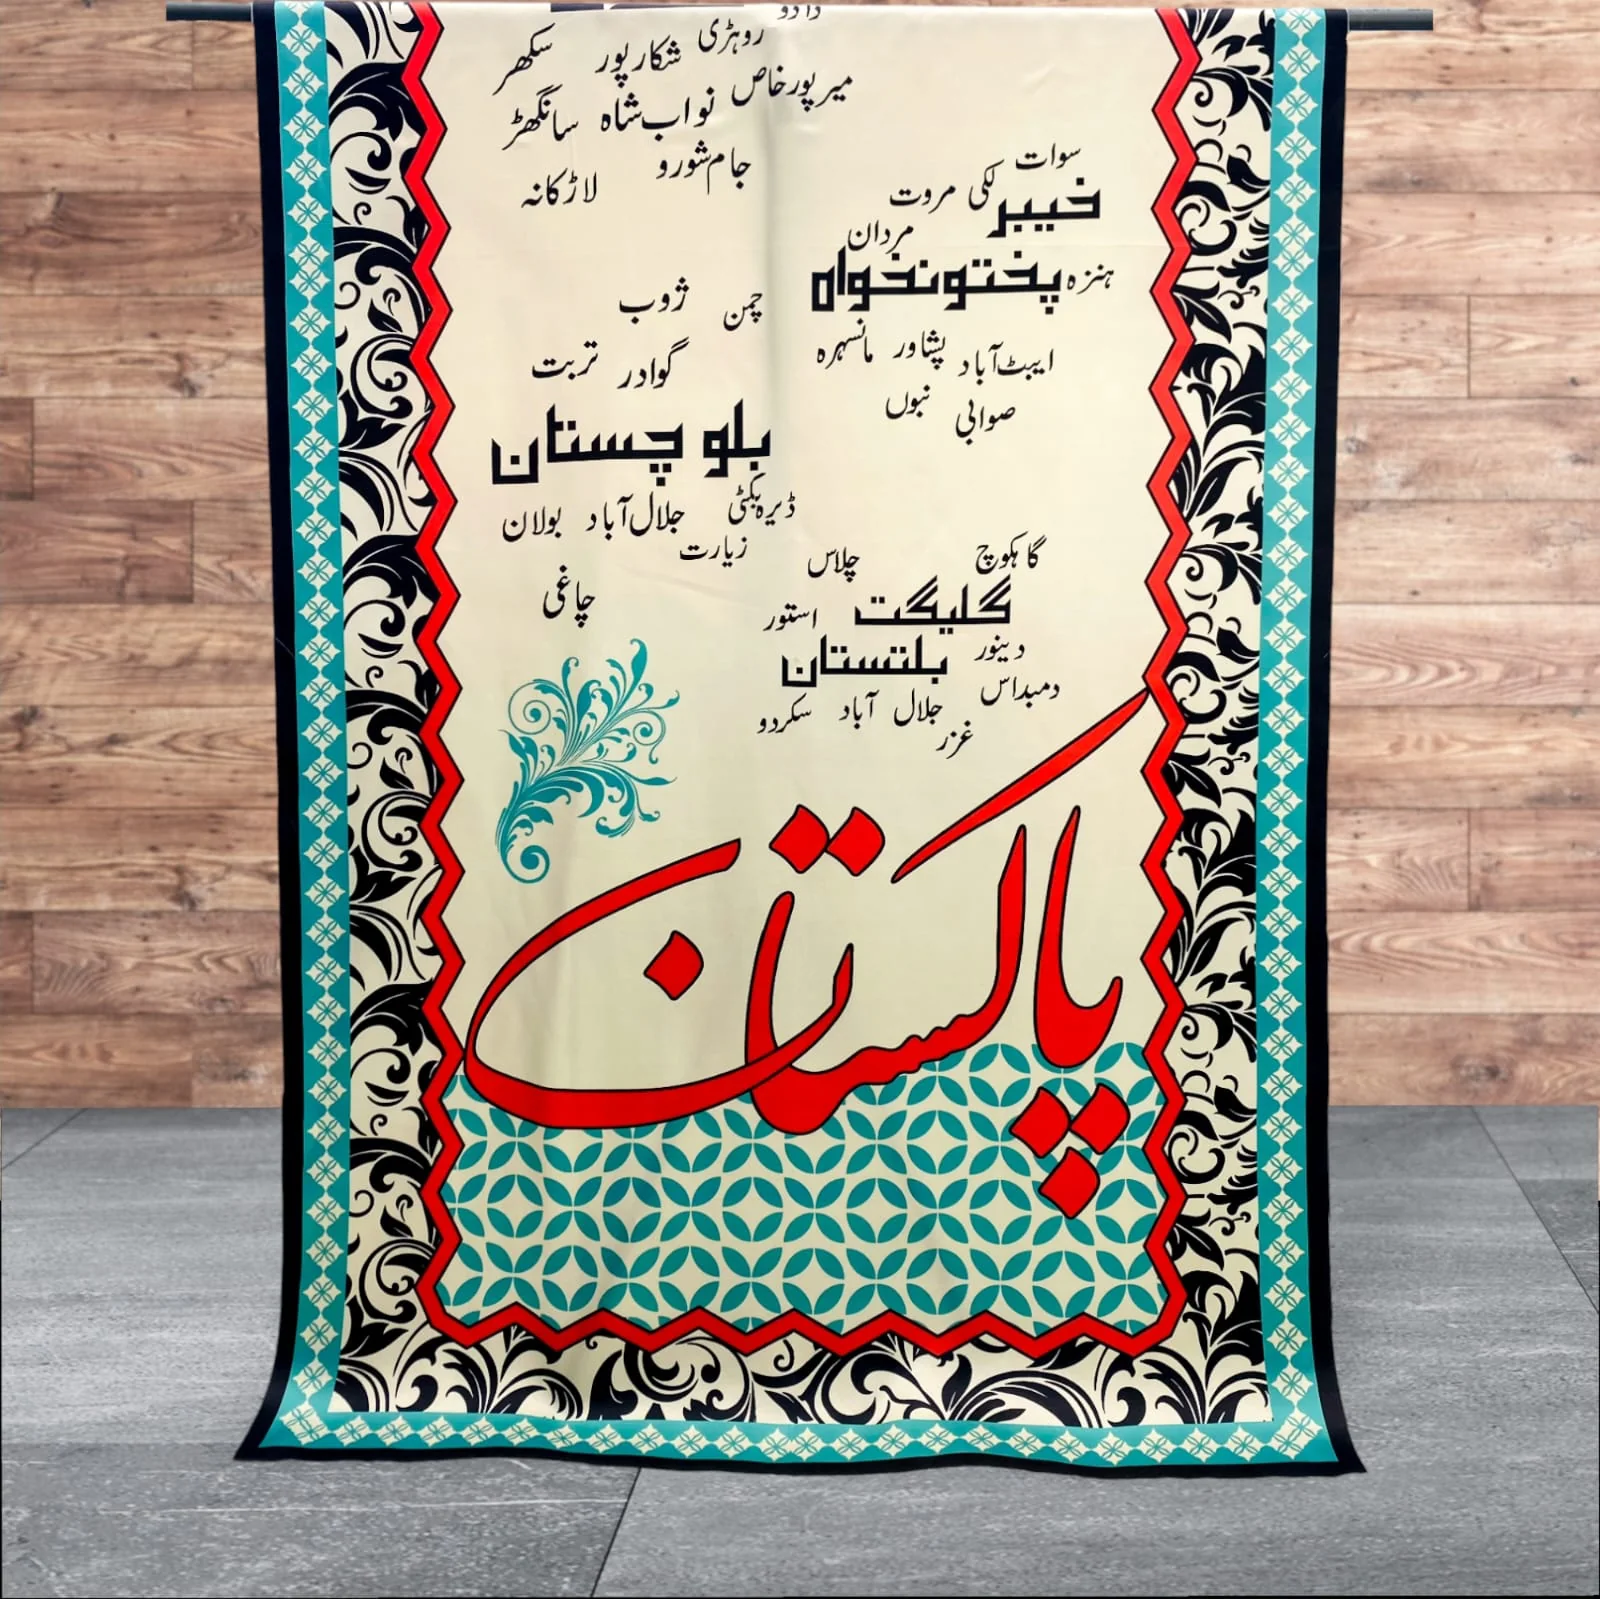 دادو
سکھر شکارپور روہڑی
میرپورخاص
سانگھڑ نواب شاہ
جام شورو
لاڑکانہ
سوات
لکی مروت
خیبر
مردان
پختونخواہ
ہنزہ
ایبٹ آباد پشاور مانسہرہ
صوابی نبوں
چمن ژوب
گوادر تربت
بلوچستان
ڈیرہ بگٹی جلال آباد بولان
زیارت
چاغی
گاہکوچ چلاس
گلیگت
استور
دینور
بلتستان
دمبداس
جلال آباد سکردو
غزر
پاکستان